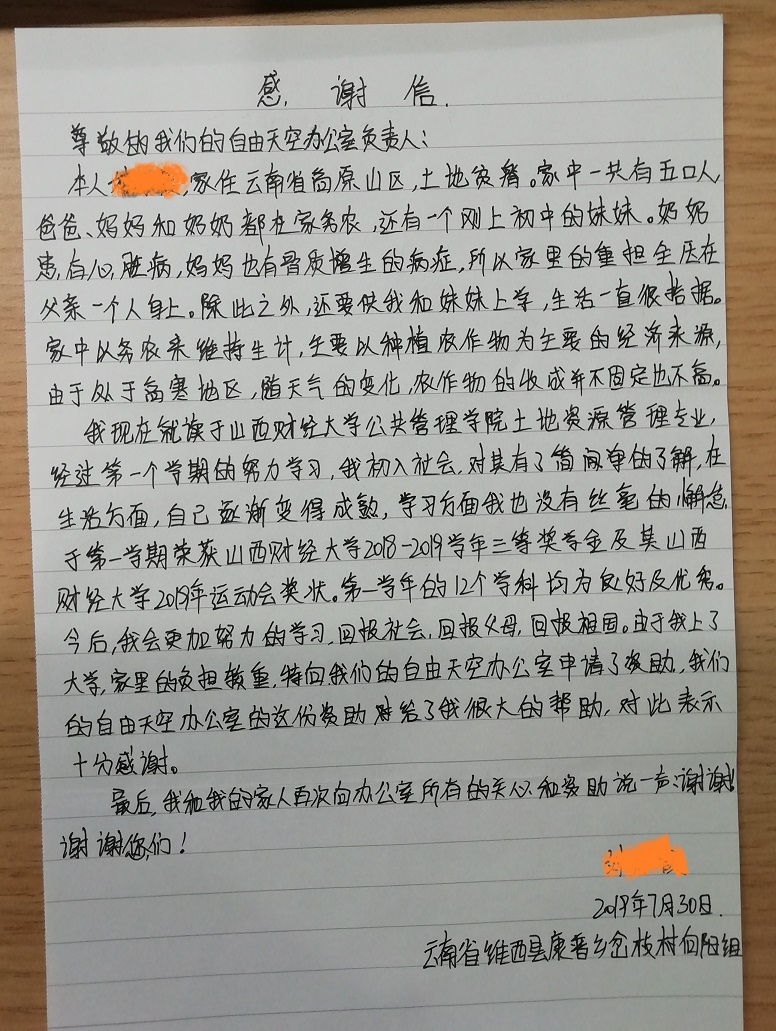 感谢信.
尊敬的我们的自由天空办公室负责人:
本人,家住云南省高原山区,土地贫瘠。家中一共有五口人,
爸爸、妈妈和奶奶都在家务农,还有一个刚上初中的妹妹。奶奶
患有心脏病,妈妈也有骨质增生的病症,所以家里的重担全压在
父亲一个人身上。除此之外,还要供我和妹妹上学,生活一直很拮据。
家中以务农来维持生计,主要以种植农作物为主要的经济来源,
由于处于高寒地区,随天气的变化,农作物的收成并不固定也不高。
我现在就读于山西财经大学公共管理学院土地资源管理专业,
经过第一个学期的努力学习,我初入社会,对其有了简单的了解,在
生活方面,自己逐渐变得成熟,学习方面我也没有丝毫的懈怠,
于第一学期荣获山西财经大学2018-2019学年三等奖学金及其山西
财经大学2019年运动会奖状。第一学年的12个学科均为良好及优秀。
今后,我会更加努力的学习,回报社会,回报父母,回报祖国。由于我上了
大学,家里的负担较重,特向我们的自由天空办公室申请了资助,我们
的自由天空办公室的这份资助给了我很大的帮助,对此表示
十分感谢。
最后,我和我的家人再次向办公室所有的关心和资助说一声:谢谢!
谢谢您们!
2019年7月30日.
云南省维西县康普乡岔枝村向阳组